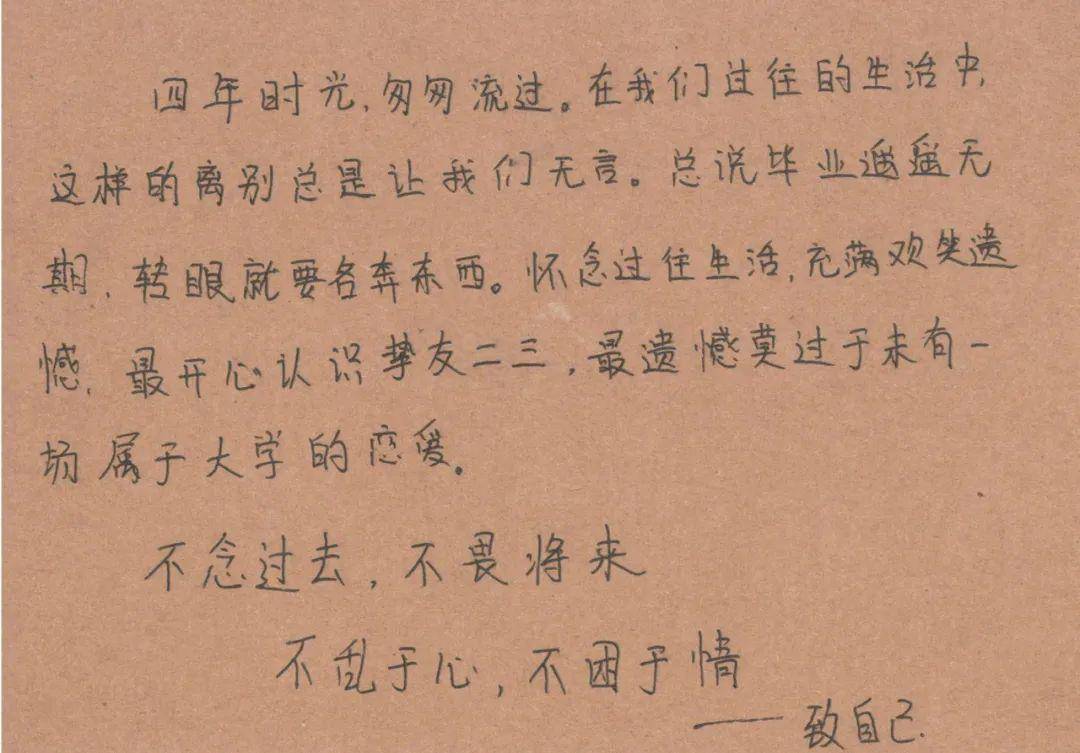 四年时光,匆匆流过。在我们过往的生活中,
这样的离别总是让我们无言。总说毕业遥遥无
期,转眼就要各奔东西。怀念过往生活,充满欢笑遗
憾,最开心认识挚友二三,最遗憾莫过于未有一
场属于大学的恋爱。
不念过去,不畏将来
不乱于心,不困于情
——致自己.